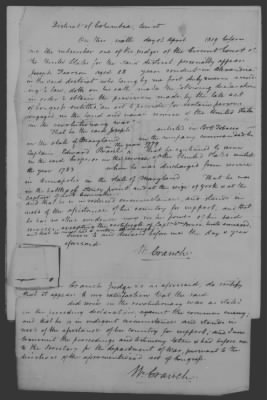 District of Columbia, Court
On this ninth day of April 1819 before
me the subscriber one of the judges of the Circuit Court of
the United States for the said district personally appears
Joseph aged 58 years resident in Alexandria
in the said district who being by me first duly sworn
to law, doth on his oath, make the following declaration
in order to obtain the provision made by the late act
of Congress entitled, an act to provide for certain persons
engaged in the land and naval service of the United States
in the revolutionary war
That he the said Joseph enlisted at Port Tobacco in
the State of Maryland in the company commanded by
Captain Edward
in the said Corps, or in the service of the United States until
the year 1783 when he was discharged from service
in Annapolis in the State of Maryland That he was
in the battle of Stony point and at the siege of York
and that he is in reduced circumstances, and stands in
need of the assistance of his country for support, and that
he has no other evidence now in his power of his said
service excepting the certificate of
Sworn to and declared before me the day & year
aforesaid.
W. Cranch.
Cranch Judge as aforesaid, do certify
that it appears to my satisfaction that the said
did serve in the revolutionary war as stated
in the preceding declaration against the common enemy,
and that he is in indigent circumstances and stands in
need of the assistance of his country for support, and I now
transmit the proceedings and testimony taken & had before me
to the Secretary for the department of War, pursuant to the
directions of the aforementioned act of Congress.
W. Cranch